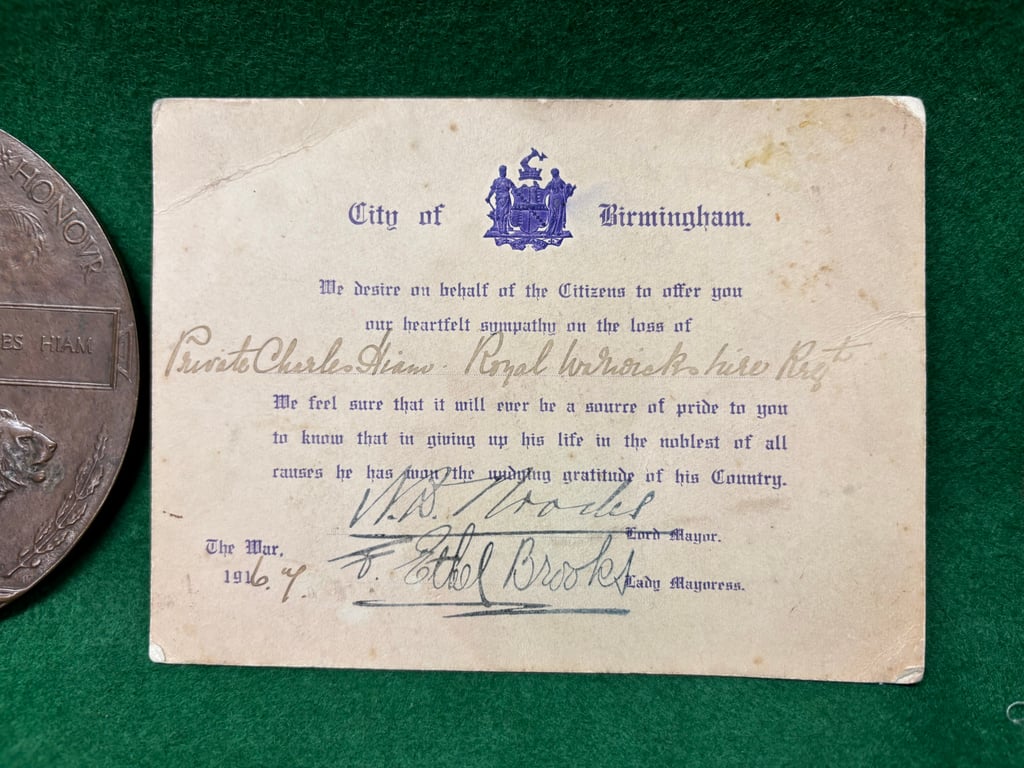 HONOVR
ES HIAM
City of Birmingham.
We desire on behalf of the Citizens to offer you
our heartfelt sympathy on the loss of
Private Charles Hiam. Royal Warwickshire Regt
We feel sure that it will ever be a source of pride to you
to know that in giving up his life in the noblest of all
causes he has won the undying gratitude of his Country.
Lord Mayor.
The War,
Ethel Brooks
Lady Mayoress.
1916.7.